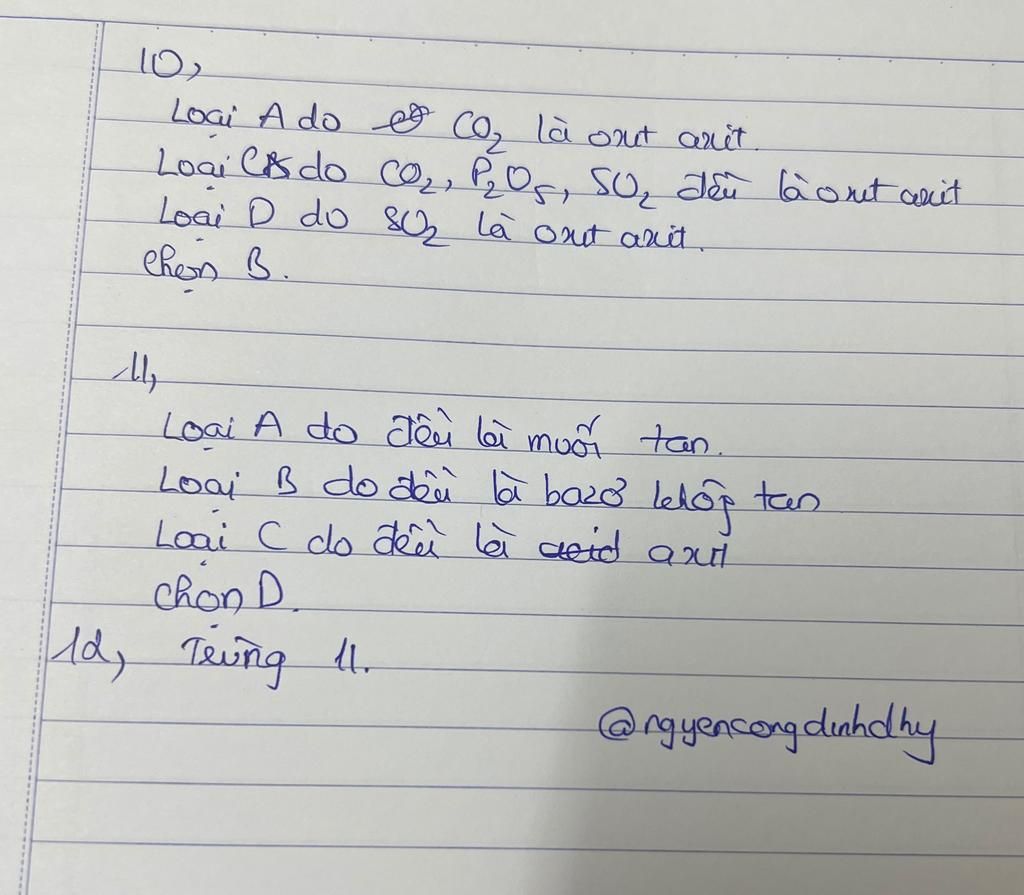 10,
Loại A do CO2 là oxit axit.
Loại C do CO2, P2O5, SO2 đều là oxit axit
Loại D do SO2 là oxit axit.
Chọn B.
11,
Loại A do đều là muối tan.
Loại B do đều là bazơ không tan
Loại C do đều là acid axit
Chọn D.
12, Trùng 11.
@ngyencongdinhdhy